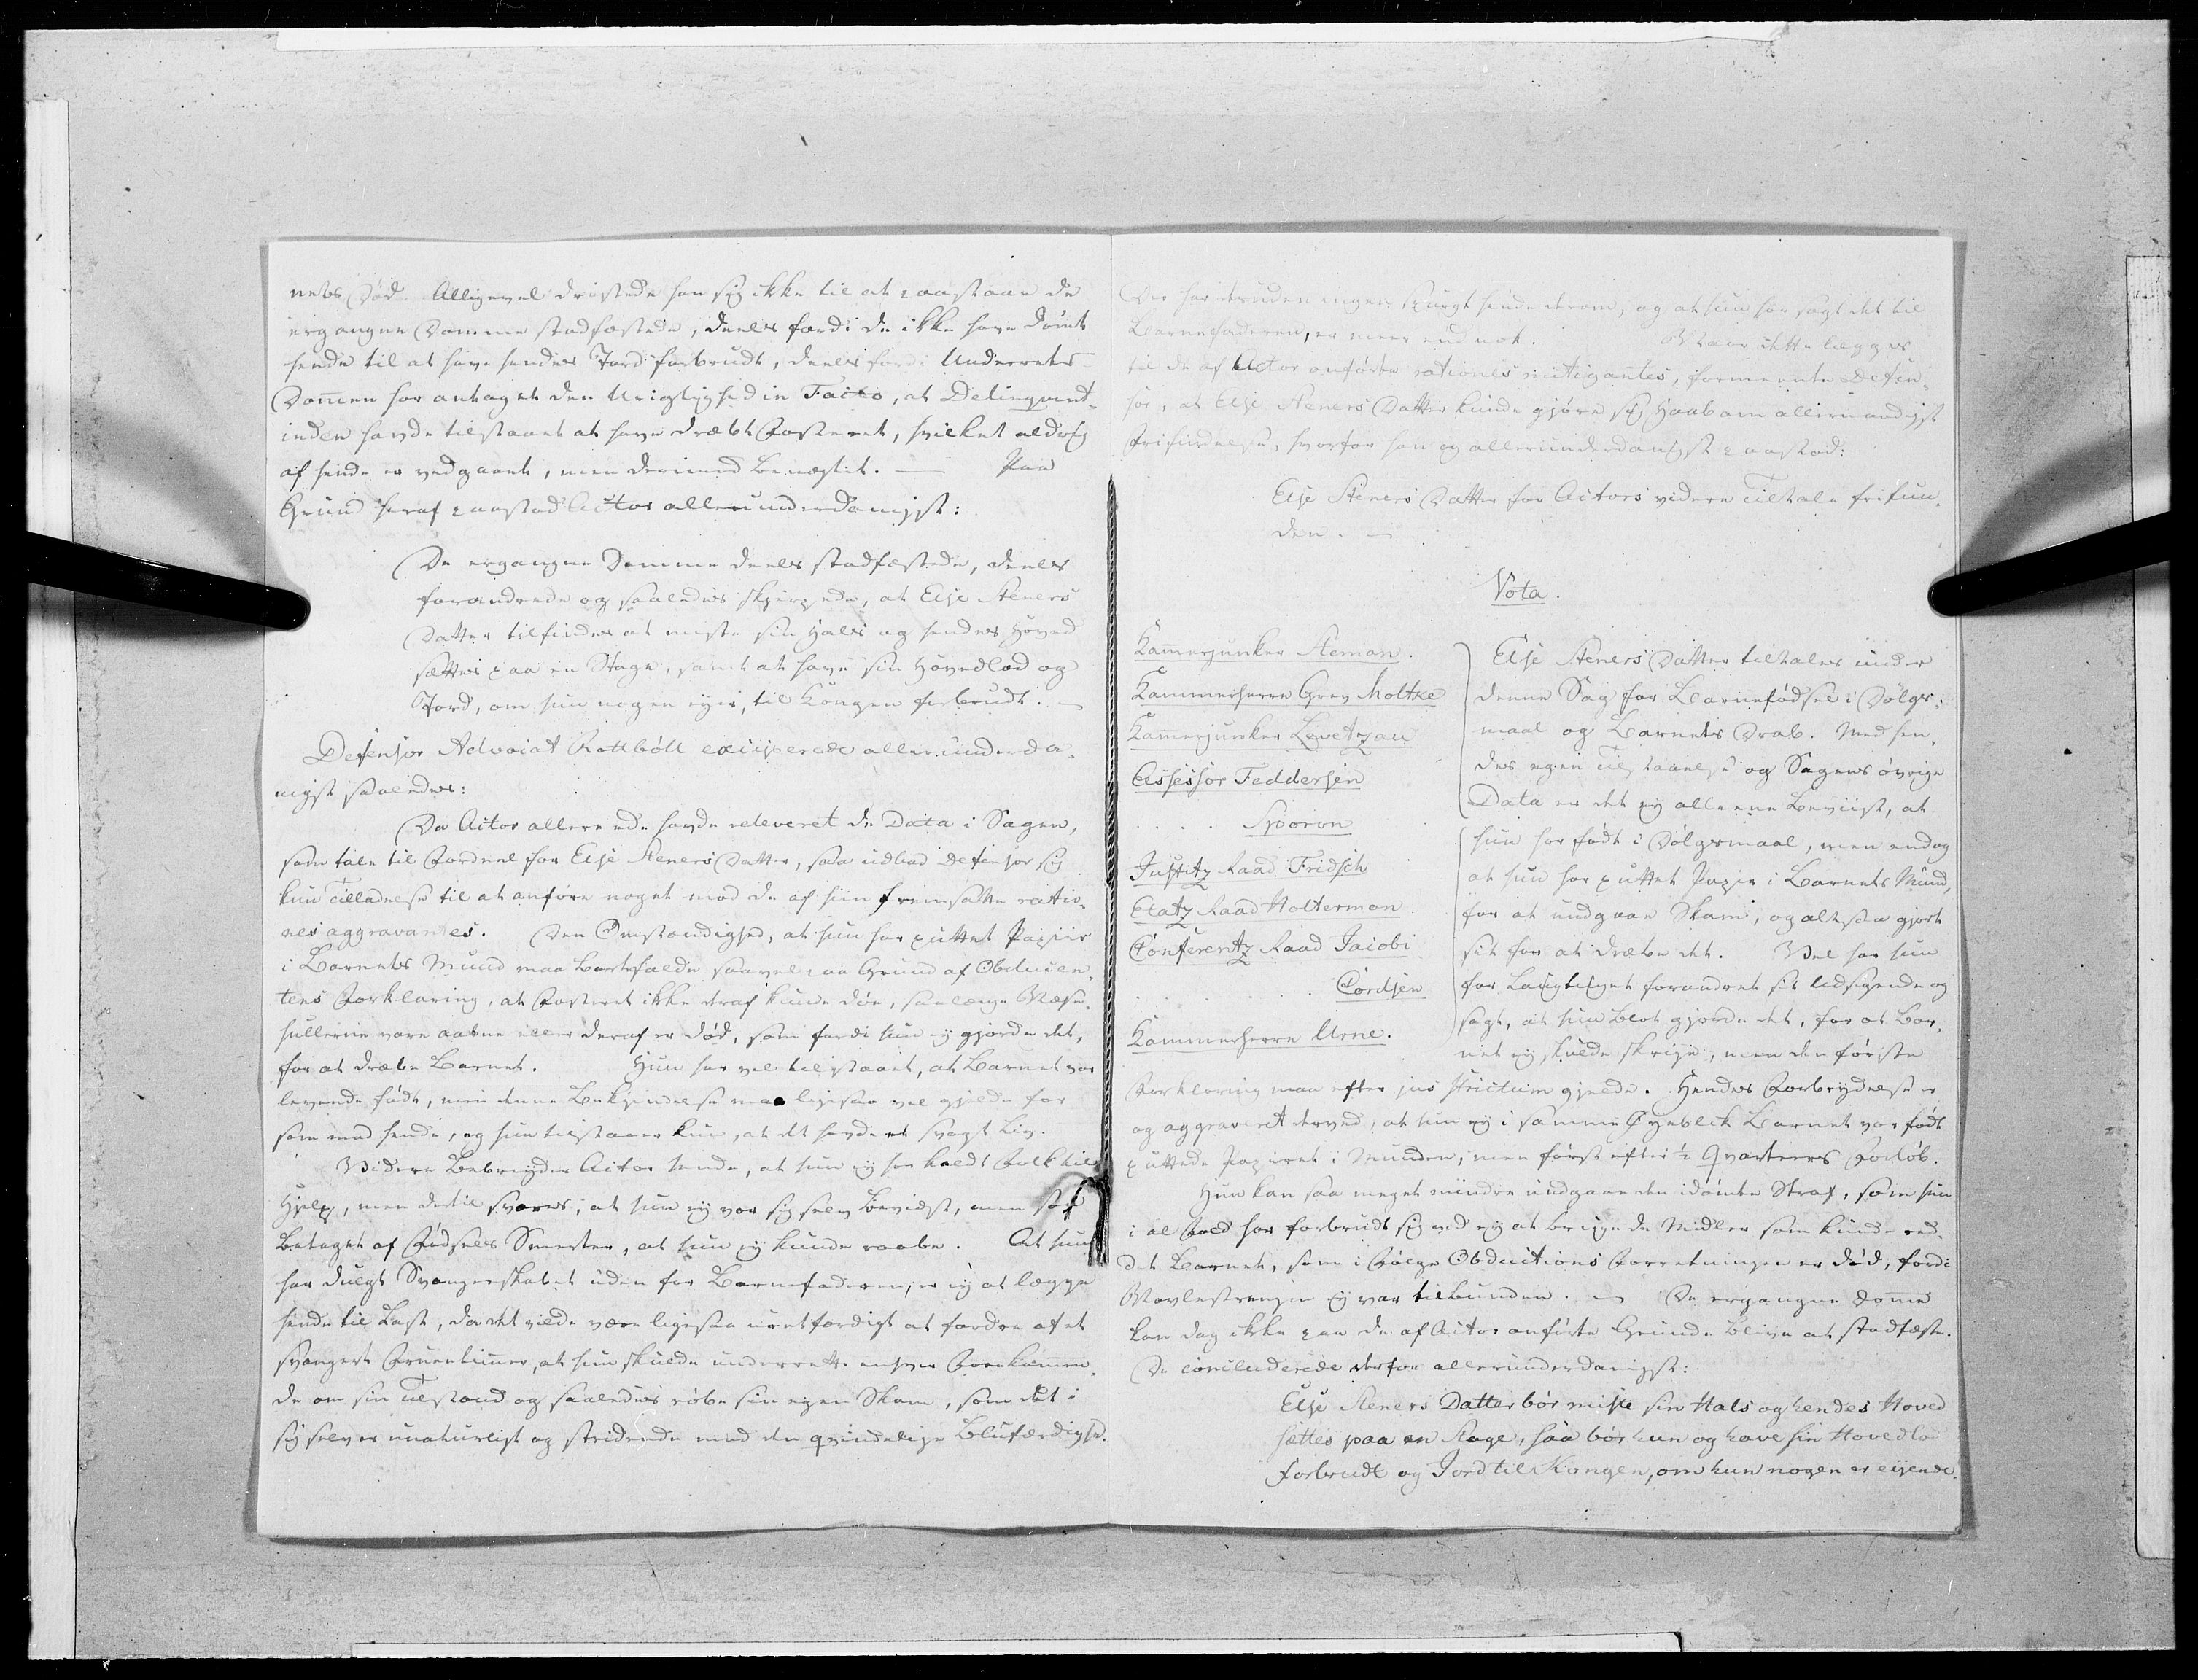 nets Død. Alligevel dristede han sig ikke til at paastaae de
ergangne Domme stadfæstede, deels fordi de ikke have dømt
hende til at have hendes Jord forbrudt, deels fordi Underrets
Dommen har antaget den Urigtighed in Facto, at Delinqvent-
inden havde tilstaaet at have dræbt Fosteret, hvilket aldrig
af hende er vedgaaet, men derimod benægtet. — Paa
Grund heraf paastod Actor allerunderdanigst:
De ergangne Domme deels stadfæstede, deels
forandrede og saaledes skjerpede, at Else Steners
Datter tilfindes at miste sin Hals og hendes Hoved
sættes paa en Stage, samt at have sin Hovedlod og
Jord, om hun nogen ejer, til Kongen forbrudt. —
Defensor Advocat Rottbøll exciperede allerunderda-
nigst saaledes:
Da Actor allerede havde releveret de Data i Sagen,
som tale til Fordeel for Else Steners Datter, saa udbad Defensor sig
kun Tilladelse til at anføre noget mod de af hiin fremsatte ratio-
nes aggravantes. Den Omstændighed, at hun har puttet Papiir
i Barnets Mund maa bortfalde saavel paa Grund af Obducen-
tens Forklaring, at Fosteret ikke deraf kunde døe, saalænge Næse-
hullerne vare aabne eller deraf er død, som fordi hun ej gjorde det,
for at dræbe Barnet. Hun har vel tilstaaet, at Barnet var
levende født, men denne Bekjendelse maa ligesaa vel gjelde for
som mod hende, og hun tilstaaer kun, at det havde et svagt Liv.
Videre bebreyder Actor hende, at hun ej har kaldt Folk til
Hjelp, men dertil svares, at hun ej var sig selv bevidst, men saa
betaget af Fødsels Smerter, at hun ej kunde raabe. At hun
har dulgt Svangerskabet uden for Barnefaderen, er ej at lægge
hende til Last, da det vilde være ligesaa uretfærdigt at fordre af et
svangert Fruentimmer, at hun skulde underrette enhver Forekommen-
de om sin Tilstand og saaledes røbe sin egen Skam, som det i
sig selv er unaturligt og stridende mod den qvindelige Blufærdighed.
Der har desuden ingen spurgt hende derom, og at hun har sagt det til
Barnefaderen, er meer end nok. Naar dette lægges
til de af Actor anførte rationes mitigantes, formeente Defen-
sor, at Else Steners Datter kunde gjøre sig Haab om allernaadigst
Frifindelse, hvorfor han og allerunderdanigst paastod:
Else Steners Datter for Actors videre Tiltale frifun-
den. —
Vota.
Kamerjunker Steman.
Kammerherre Grev Moltke
Kamerjunker Levetzau
Assessor Feddersen
. . . . Sporon
Justitz Raad Fridsch
Etatz Raad Holterman
Conferentz Raad Jacobi
. . . . . . . Cordsen
Kammerherre Urne.
Else Steners Datter tiltales under
denne Sag for Barnefødsel i Dølgs-
maal og Barnets Drab. Med hen-
des egen Tilstaaelse og Sagens øvrige
Data er det ej alleene beviist, at
hun har født i Dølgsmaal, men endog
at hun har puttet Papir i Barnets Mund,
for at undgaae Skam, og altsaa gjort
sit for at dræbe det. Vel har hun
for Laugtinget forandret sit Udsigende og
sagt, at hun blot gjorde det, for at Bar-
net ej skulde skrige, men den første
Forklaring maa efter jus strictum gjelde. Hendes Forbrydelse er
og aggraveret derved, at hun ej i samme Øyeblik Barnet var født
puttede Papiret i Munden, men først efter ½ Qvarteers Forløb.
Hun kan saa meget mindre undgaae den idømte Straf, som hun
i al Fald har forbrudt sig ved ej at bruge de Midler som kunde red-
det Barnet, som i Følge Obductions Forretningen er død, fordi
Navlestrengen ej var tilbunden. — De ergangne Domme
kan dog ikke paa de af Actor anførte Grunde blive at stadfæste.
De concluderede derfor allerunderdanigst:
Else Steners Datter bør miste sin Hals og hendes Hoved
sættes paa en Stage, saa bør hun og have sin Hovedlod
forbrudt og Jord til Kongen, om hun nogen er eijende.